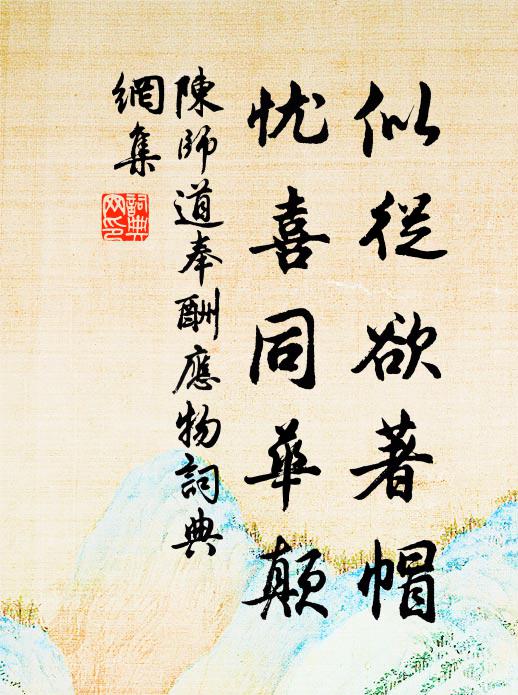 似從欲著帽
忧喜同華顛
陳師道奉酬應物詞典
網集
詞典
网印